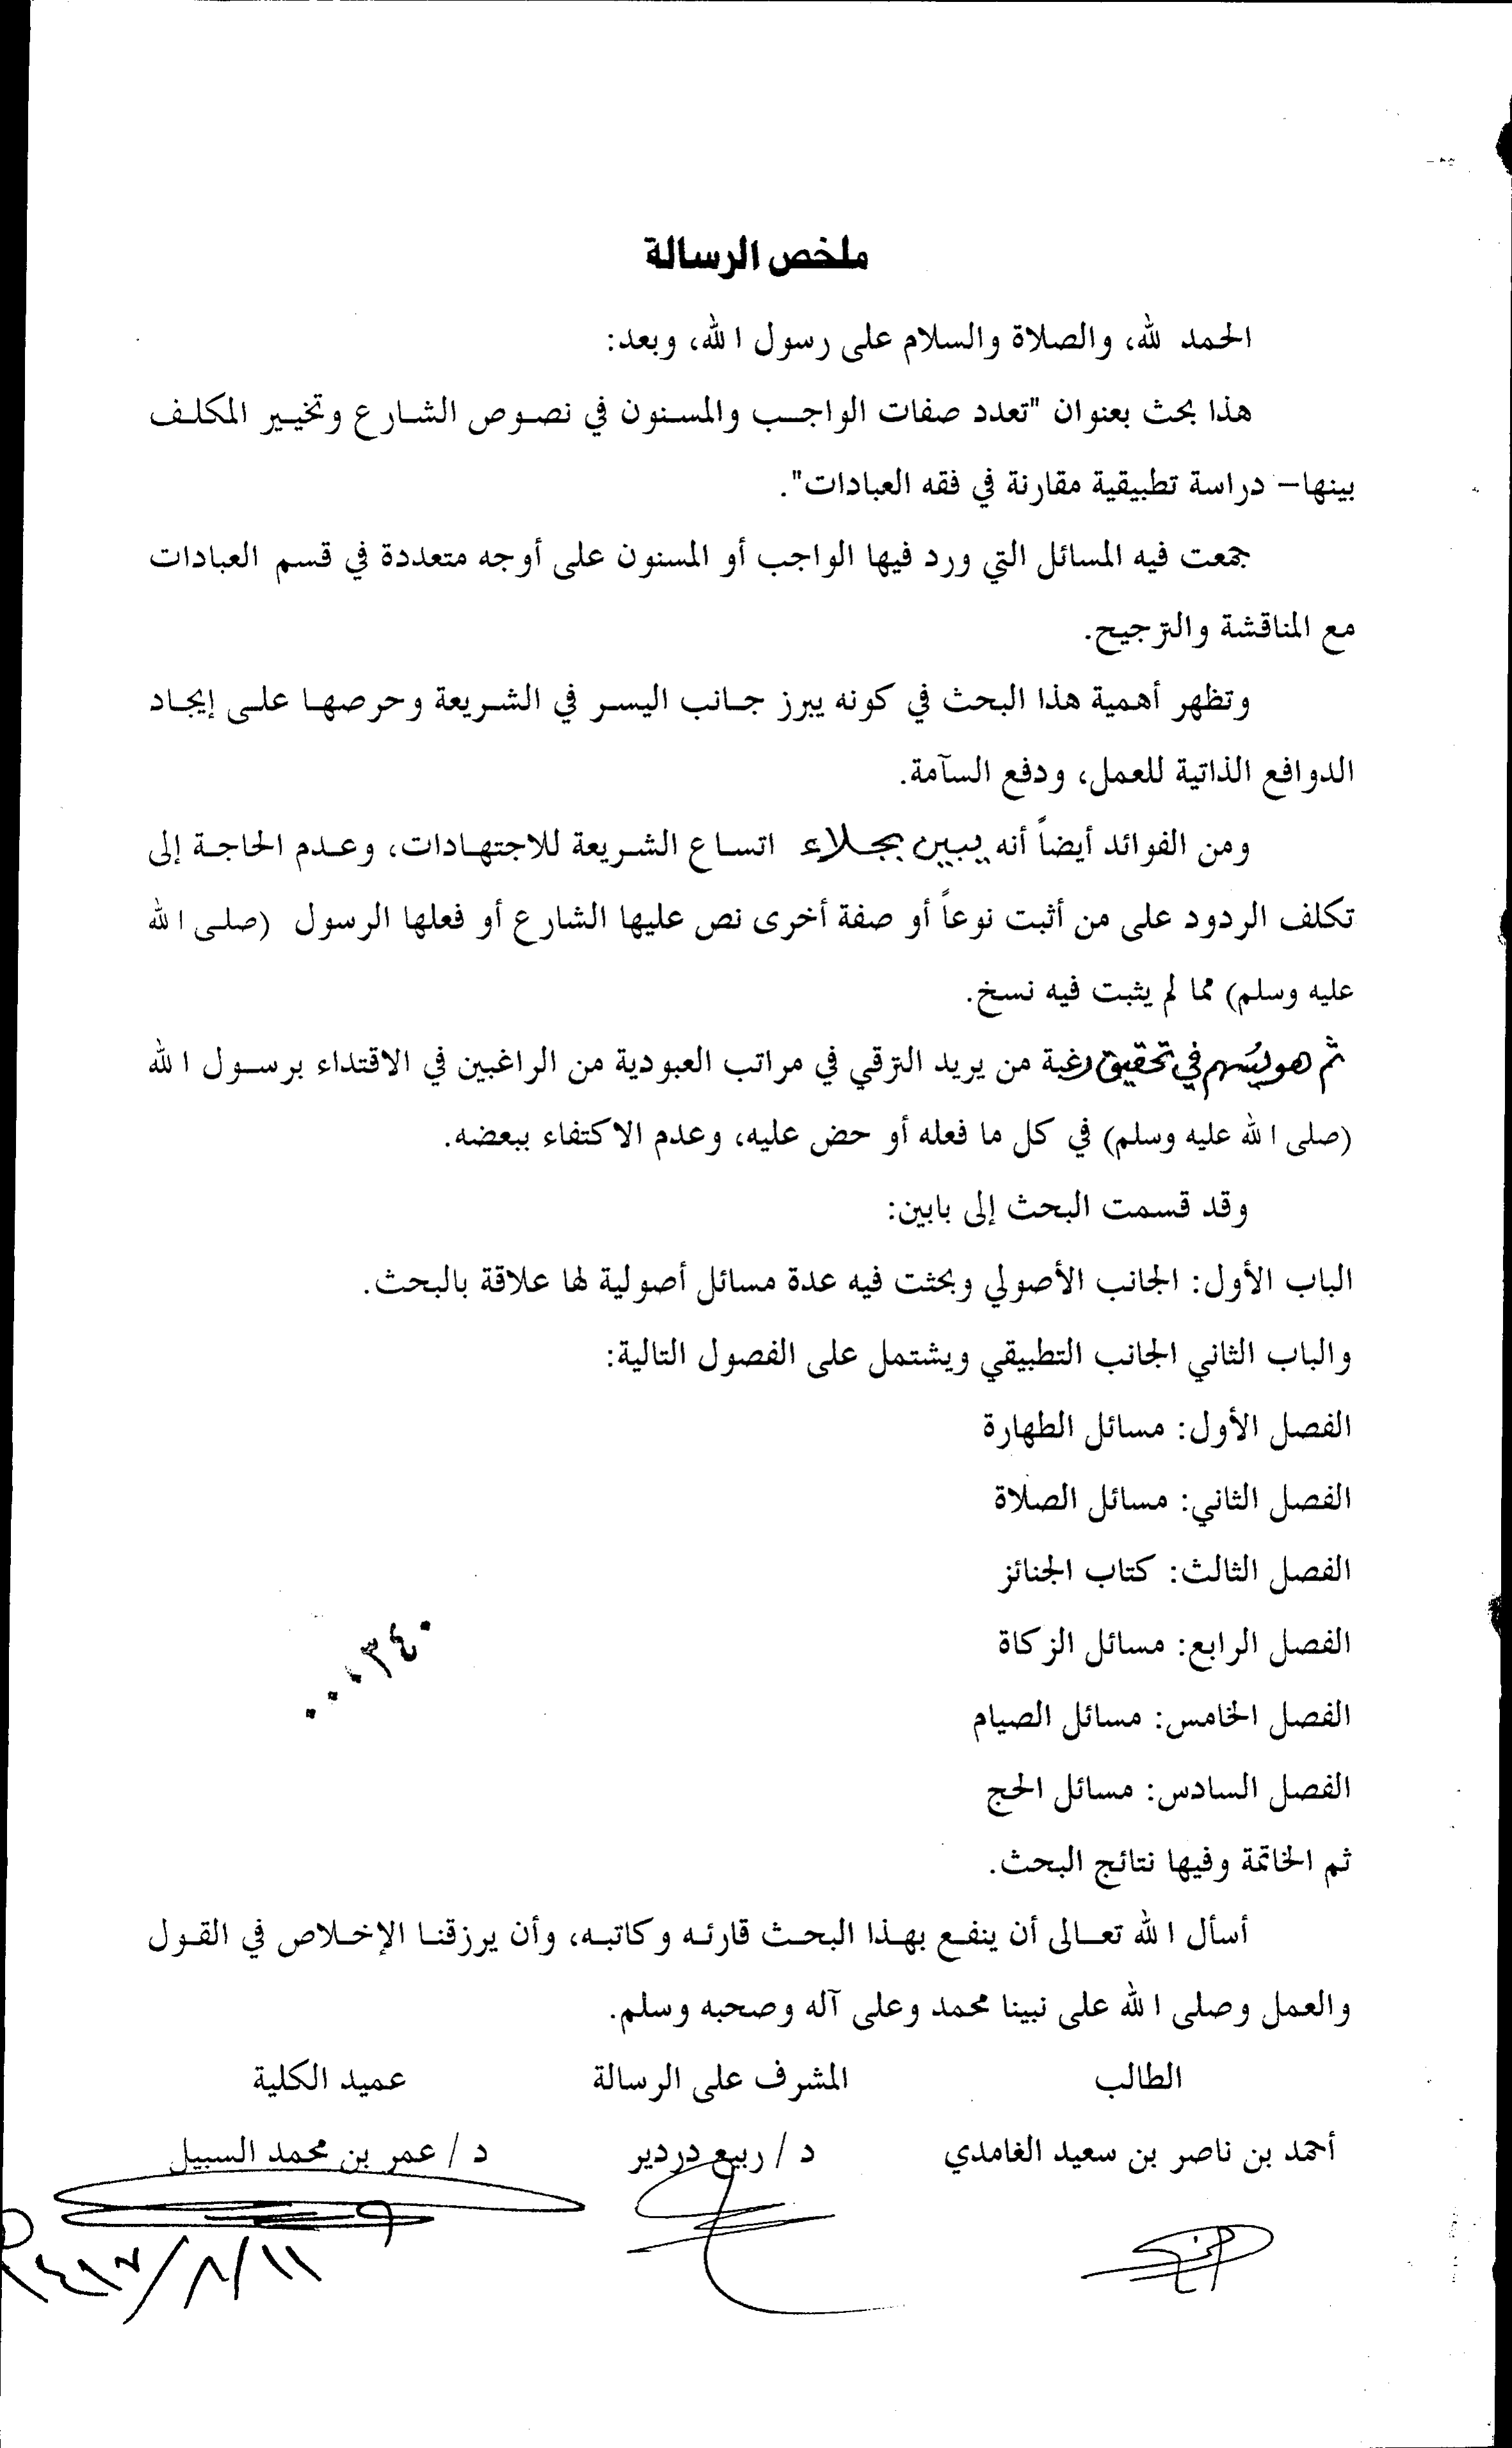 ملخص الرسالة
الحمد لله، والصلاة والسلام على رسول الله، وبعد:
هذا بحث بعنوان "تعدد صفات الواجب والمسنون في نصوص الشارع وتخيير المكلف
بينها– دراسة تطبيقية مقارنة في فقه العبادات".
جمعت فيه المسائل التي ورد فيها الواجب أو المسنون على أوجه متعددة في قسم العبادات
مع المناقشة والترجيح.
وتظهر أهمية هذا البحث في كونه يبرز جانب اليسر في الشريعة وحرصها على إيجاد
الدوافع الذاتية للعمل، ودفع السآمة.
ومن الفوائد أيضاً أنه يبين بجلاء اتساع الشريعة للاجتهادات، وعدم الحاجة إلى
تكلف الردود على من أثبت نوعاً أو صفة أخرى نص عليها الشارع أو فعلها الرسول (صلى الله
عليه وسلم) مما لم يثبت فيه نسخ.
ثم هو يُسهم في تحقيق رغبة من يريد الترقي في مراتب العبودية من الراغبين في الاقتداء برسول الله
(صلى الله عليه وسلم) في كل ما فعله أو حض عليه، وعدم الاكتفاء ببعضه.
وقد قسمت البحث إلى بابين:
الباب الأول: الجانب الأصولي وبحثت فيه عدة مسائل أصولية لها علاقة بالبحث.
والباب الثاني الجانب التطبيقي ويشتمل على الفصول التالية:
الفصل الأول: مسائل الطهارة
الفصل الثاني: مسائل الصلاة
الفصل الثالث: كتاب الجنائز
الفصل الرابع: مسائل الزكاة
٠٠٠٣٤٠
الفصل الخامس: مسائل الصيام
الفصل السادس: مسائل الحج
ثم الخاتمة وفيها نتائج البحث.
أسأل الله تعالى أن ينفع بهذا البحث قارئه وكاتبه، وأن يرزقنا الإخلاص في القول
والعمل وصلى الله على نبينا محمد وعلى آله وصحبه وسلم.
الطالب المشرف على الرسالة عميد الكلية
أحمد بن ناصر بن سعيد الغامدي د / ربيع دردير د / عمر بن محمد السبيل
١١/٨/١٤١٧